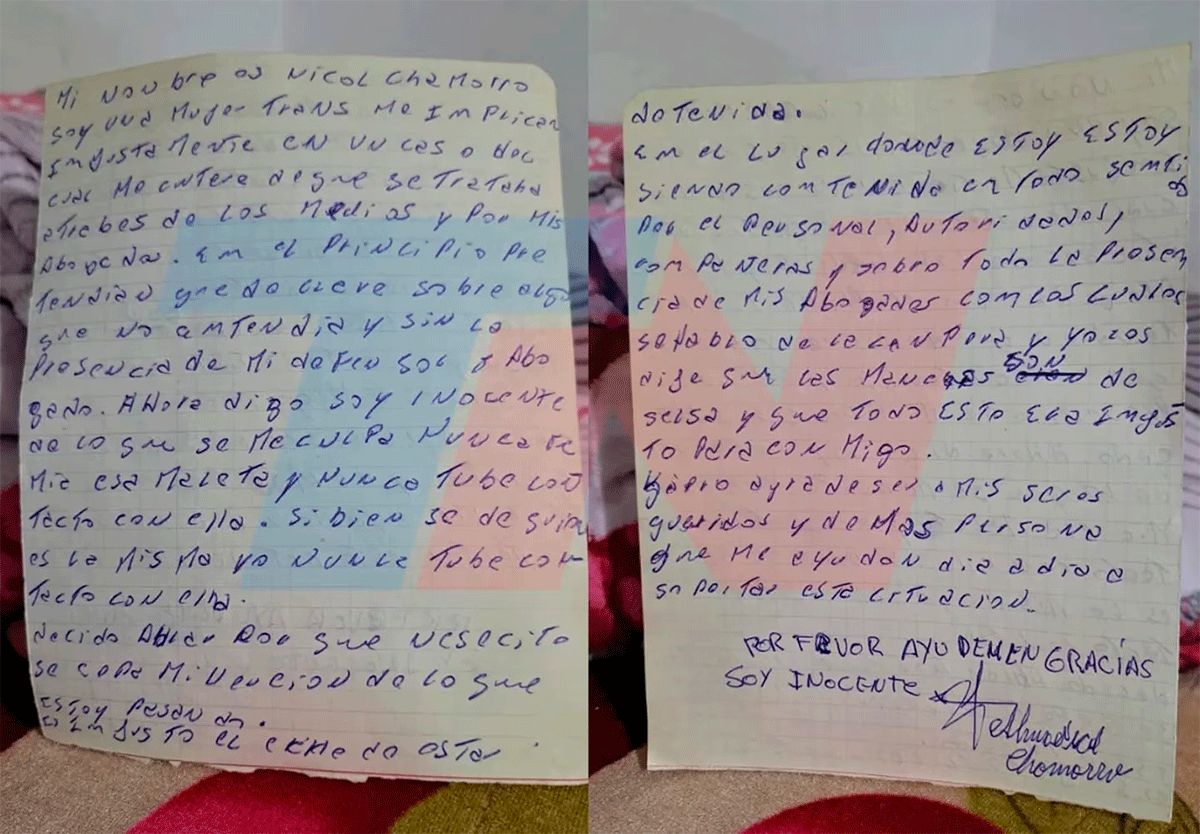 Mi nonbre es Nicol Chamorro
soy una Mujer Trans Me Implican
Injusta Mente en un caso o del
cual Me entere de que se trataba
atrebes de los Medios y por Mis
Abogados. Em el Principio Pre
tendian que declere sobre algo
que no amtendia y sin la
Presencia de Mi defensor y Abo
gado. Ahora digo soy inocente
de lo que se Me culpa Nunca fe
Mia esa Maleta y Nunca Tube con
tacto con ella. Si bien se de quien
es la Mis Ma yo Nunca Tube con
tacto con ella.
decido Ablar Por que Nesecito
se copa Mi vercion de lo que
Estoy Pasando.
Es Imjusto el de estar
detenida.
Em el lugar donde ESTOY ESTOY
siendo comtenida en todo semti
do
Por el Personal, Autoridades,
comPañeras y sobre Todo la Presen
cia de Mis Abogados com los cuales
se hablo de le cam Pera y yo los
dije que las Manchas SON de
selsa y que todo ESTO Era Imjus
To Para con Migo.
Qiero agradeser a Mis seres
queridos y deMas Persona
que Me ayudan dia a dia a
soportar esta cituacion.
POR FEVOR AYUDEMEN GRACÍAS
SOY INOCENTE
Chamorro